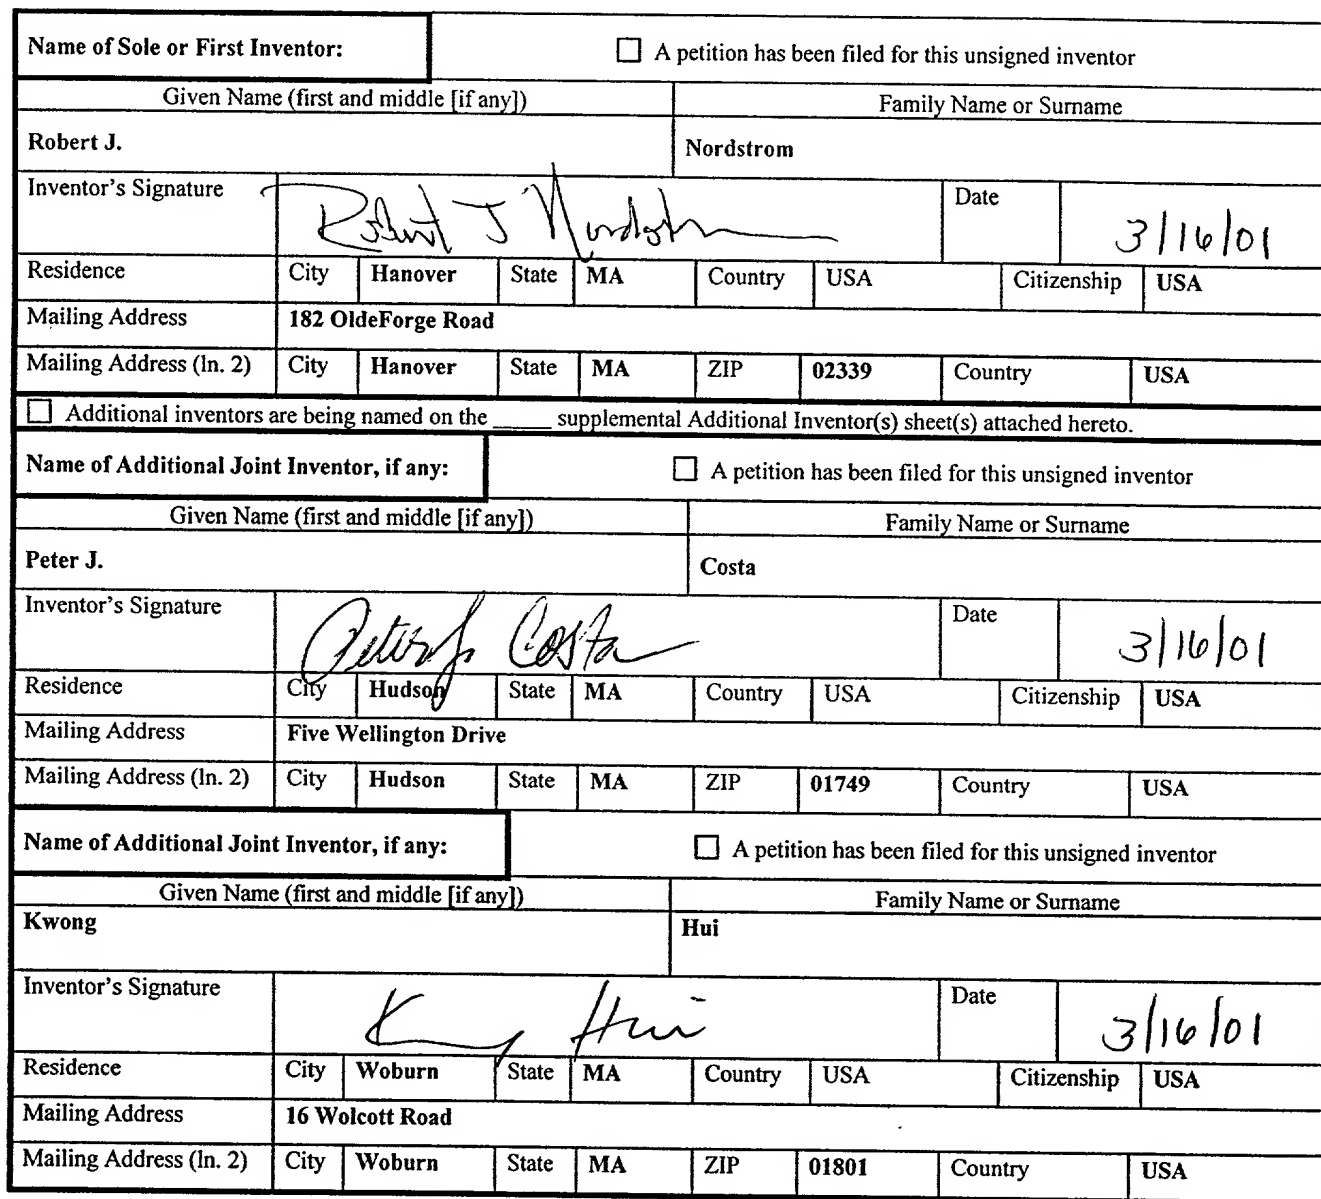 Name of Sole or First Inventor: ☐ A petition has been filed for this unsigned inventor
Given Name (first and middle [if any]) Family Name or Surname
Robert J. Nordstrom
Inventor's Signature Robert J Nordstrom Date 3/16/01
Residence City Hanover State MA Country USA Citizenship USA
Mailing Address 182 OldeForge Road
Mailing Address (ln. 2) City Hanover State MA ZIP 02339 Country USA
☐ Additional inventors are being named on the _____ supplemental Additional Inventor(s) sheet(s) attached hereto.
Name of Additional Joint Inventor, if any: ☐ A petition has been filed for this unsigned inventor
Given Name (first and middle [if any]) Family Name or Surname
Peter J. Costa
Inventor's Signature Peter J. Costa Date 3/16/01
Residence City Hudson State MA Country USA Citizenship USA
Mailing Address Five Wellington Drive
Mailing Address (ln. 2) City Hudson State MA ZIP 01749 Country USA
Name of Additional Joint Inventor, if any: ☐ A petition has been filed for this unsigned inventor
Given Name (first and middle [if any]) Family Name or Surname
Kwong Hui
Inventor's Signature Kwong Hui Date 3/16/01
Residence City Woburn State MA Country USA Citizenship USA
Mailing Address 16 Wolcott Road
Mailing Address (ln. 2) City Woburn State MA ZIP 01801 Country USA